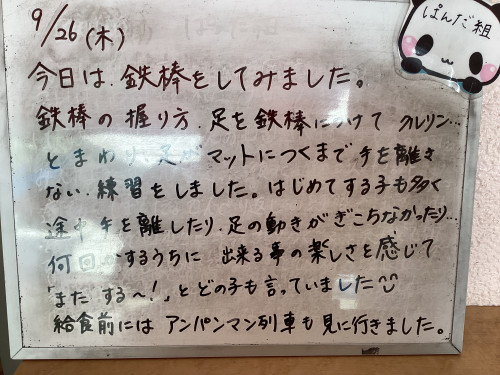 ぱんだ組
9/26(木)
今日は、鉄棒をしてみました。
鉄棒の握り方、足を鉄棒にかけて クルリン…
とまわり、足がマットにつくまで手を離さ
ない、練習をしました。はじめてする子も多く
途中手を離したり、足の動きがぎこちなかったり…
何回かするうちに 出来る事の楽しさを感じて
「また する〜!」とどの子も言っていました
給食前には アンパンマン列車も見に行きました。